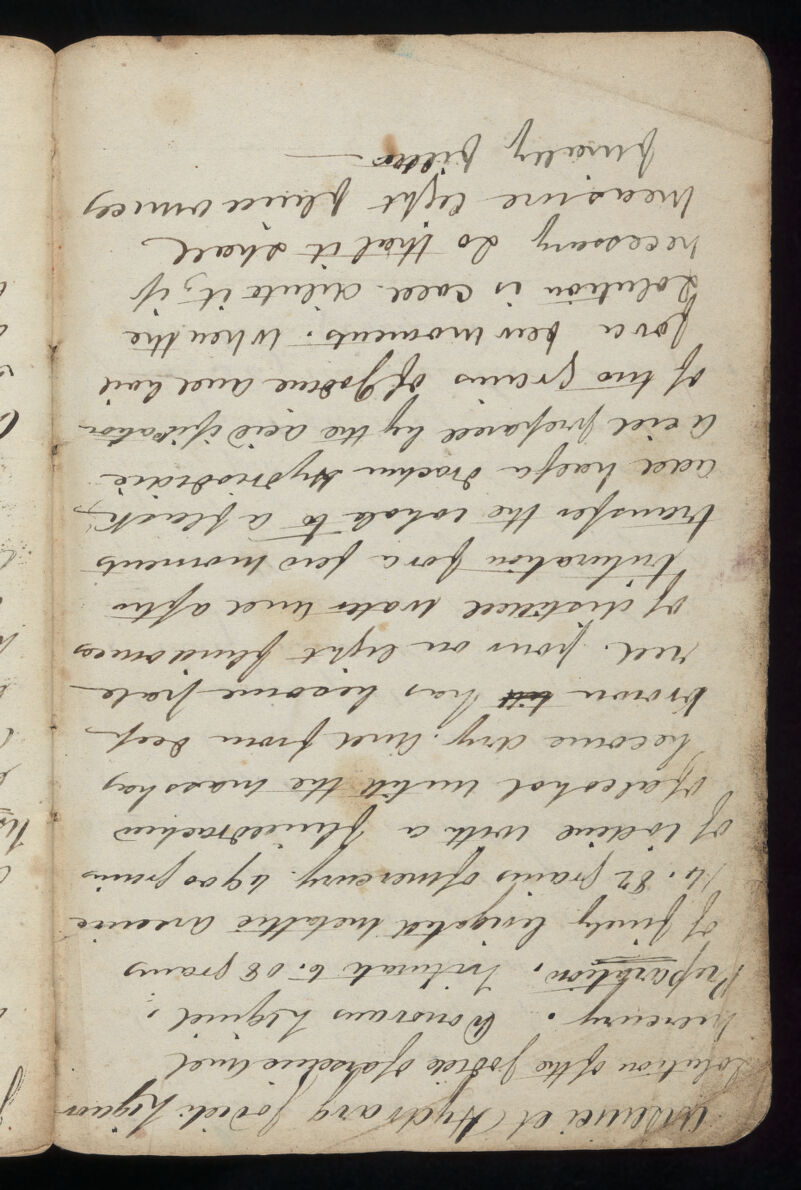 Arsenici et Hydrarg Jodidi Liquor
Solution of the Jodide of arsenic and
mercury. Donovans Lequid.
Preparation. triturate 6.08 grains
of finely livgated metallic arsenic
14.82 grains of mercury. 4900 grains
of iodine with a fluiddrachm
of alcohol until the mass has
become dry. and from deep
brown has become pale
red. pour on eight fluidounces
of distilled water and after
trituration for a few moments
transfer the whole to a flask,
add half a drachm Hydriodic
acid prepared by the acidification
of two grains of Jodine and boil
for a few moments. When the
Solution is cold. dilute it, if
necessary so that it shall
measure eight fluid ounces
finally filter